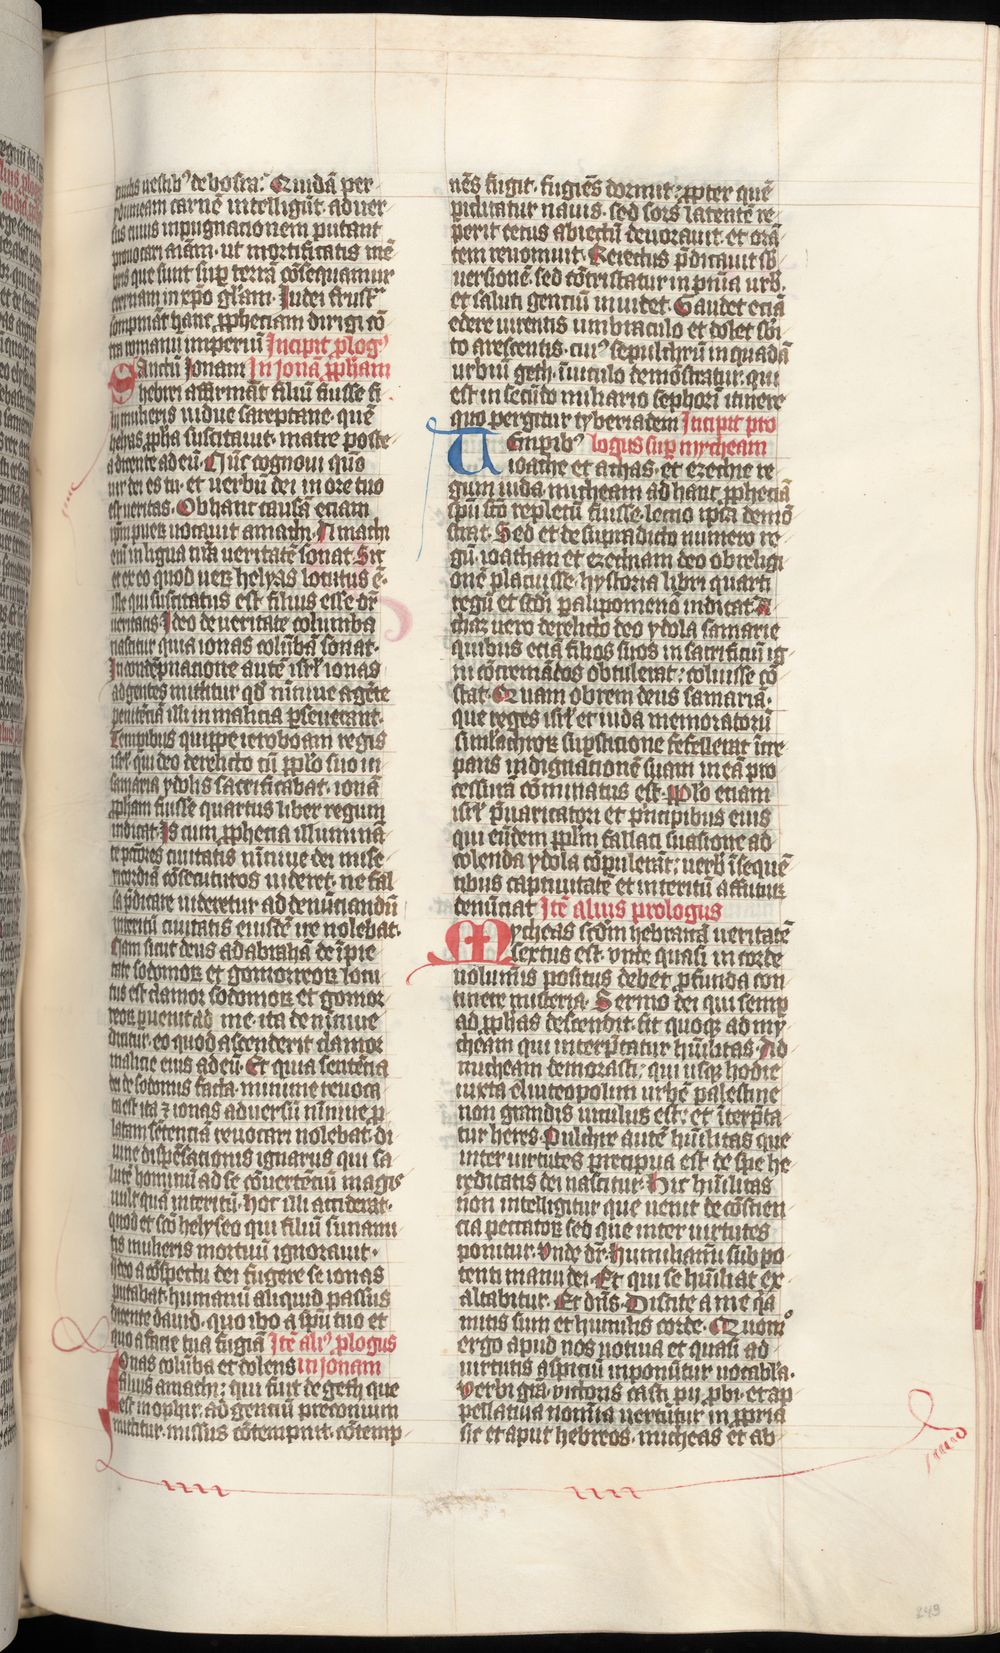 vestib᷒ de bosra. Quidā per
ydumeam carnē intelligūt. aduer
sus cuius inpugnationem putant
prouocari aīam. ut mortificatis mē
bris que sunt suꝑ terrā cōsequamur
eternam in xp̄o gl̄iam. Iudei frust͛
sompniāt hanc ꝓpheciam dirigi cō
tra romanū imperiū Incipit plog᷒
Sanctū Jonam In jonā ꝓph̄am
hebrei affirmāt filiū fuisse
mulieris vidue sareptane. quē
helyas ꝓpha suscitauit. matre poste
a dicente ad eū. Nūc cognoui qm̄
uir dei es tu. et verbū dei in ore tuo
est veritas. Ob hanc causā etiam
puerū uocauit amathi. Amathi
em̄ in ligua nr̄a ueritatē sonat. Sic
et ex eo quod ueꝝ helyas locutus ē.
ille qui suscitatus est filius esse dr̄
ueritatis. Ideo de ueritate columba
nascitur quia ionas colūba sonat.
In condēpnatione autē isrl̄ ionas
ad gentes mittitur qd̄ niniue agēte
penitēciā illi in malicia ꝑseuerant.
Tempibus quippe ieroboam regis
isrl̄. qui deo derelicto cū pplo suo in
samaria ydolis sacrificabat. ionā
ꝓpham fuisse quartus liber regum
indicat. Is cum ꝓphecia illumina
te pctores ciuitatis niniue dei mise
ricordiā cōsecuturos uideret. ne fal
sa p̄dicare uideretur ad denūciandū
interitū ciuitatis eiusdē ire nolebat.
Nam sicut deus ad abrahā de īpie
tate sodomoꝝ et gomorreoꝝ locu
tus est clamor sodomoꝝ et gomor
reoꝝ ꝑuenit ad me. ita de niniue
dicitur. eo quod ascenderit clamor
malicie eius ad eū. Et quia sentēcia
dei de sodomis facta. minime reuoca
ta est ita ⁊ ionas aduersū niniue ꝑ
latam sētenciā reuocari nolebat. di
uine dispēsationis ignarus qui sa
lutē hominū ad se cōuertēciū magis
uult quā interitū. hoc illi acciderat.
quod et scō helyseo qui filiū sunami
tis mulieris mortuū ignorauit.
Ideo a cōspectu dei fugere se ionas
putabat. humanū aliquid passus
dicente dauid. quo ibo a spū tuo et
quo a facie tua fugiā Itē ali᷒ plogus
Ionas colūba et dolens in jonam
filius amathi: qui fuit de geth que
est in ophir. ad gentiū preconium
mittitur. missus cōtempnit. cōtemp
nēs fugit. fugiēs dormit. ꝓpter quē
piclitatur nauis. sed sors latentē re
perit cetus abiectū deuorauit. et orā
tem reuomuit. Reiectus p̄dicauit sb̄
uersionē. sed cōtristatur in pn̄ia urb.
et saluti genciū inuidet. Gaudet eciā
edere uirentis umbraculo et dolet sbi
to arescentis. cui᷒ sepulchrū in quadā
urbiū geth. uiculo demōstratur. qui
est in secūdo miliario sephorī itinere
quo pergitur tyberiadem Incipit pro
Tempib᷒ logus suꝑ mycheam
ioathe et achas. et ezechie re
gum iuda. micheam ad hanc ꝓpheciā
spū sco repletū fuisse. lectio ipā demō
strat. Sed et de supradicto numero re
gū. ioathan et ezechiam deo ob religi
onē placuisse. hystoria libri quarti
regū et scd̄i palipomenō indicat. A
chaz uero derelicto deo ydola samarie
quibus eciā filios suos in sacrificiū ig
ni cōcremādos obtulerat: coluisse cō
stat. Quam obrem deus samariā.
que reges isrl̄ et iuda memoratorū
simlachroꝝ supsticione fefellerat īcre
pans indignationē suam in eā pro
cessurā cōminatus est. Pplo etiam
isrl̄ p̄uaricatori et pncipibus eius
qui eundem pplm fallaci suasione ad
colenda ydola cōpulerāt: uerb īsequē
tibus captiuitatē et interitū affuturū
denūciat Itē alius prologus
Mycheas scd̄m hebraicā ueritatē
sextus est. vnde quasi in corde
uolumīs positus debet ꝓfunda con
tinere misteria. Sermo dei qui semꝑ
ad ꝓphas descendit. fit quoqꝫ ad my
cheam qui interp̄tatur hūilitas. Ad
micheam de morasti: qui usqꝫ hodie
iuxta eleuteopolim urbē palestine
non grandis uiculus est: et īterp̄ta
tur heres. Pulchre autē hūilitas que
inter uirtutes precipua est de spe he
reditatis dei nascitur. Hic hūilitas
non intelligitur que uenit de cōscien
cia peccatoꝝ sed que inter uirtutes
ponitur. Vnde dr̄. humiliamī sub po
tenti manu dei. Et qui se hūiliat ex
altabitur. Et dn̄s. Discite a me qa
mitis sum et humilis corde. Quomo
ergo apud nos uotiua et quasi ad
uirtutis aspiciū inponūtur uocabl̄a.
Verbi gra. victoris casti pij ꝓbi. et ap
pellatiua nomīa uertūtur in ꝓpria
sic et aput hebreos. micheas et ab
249